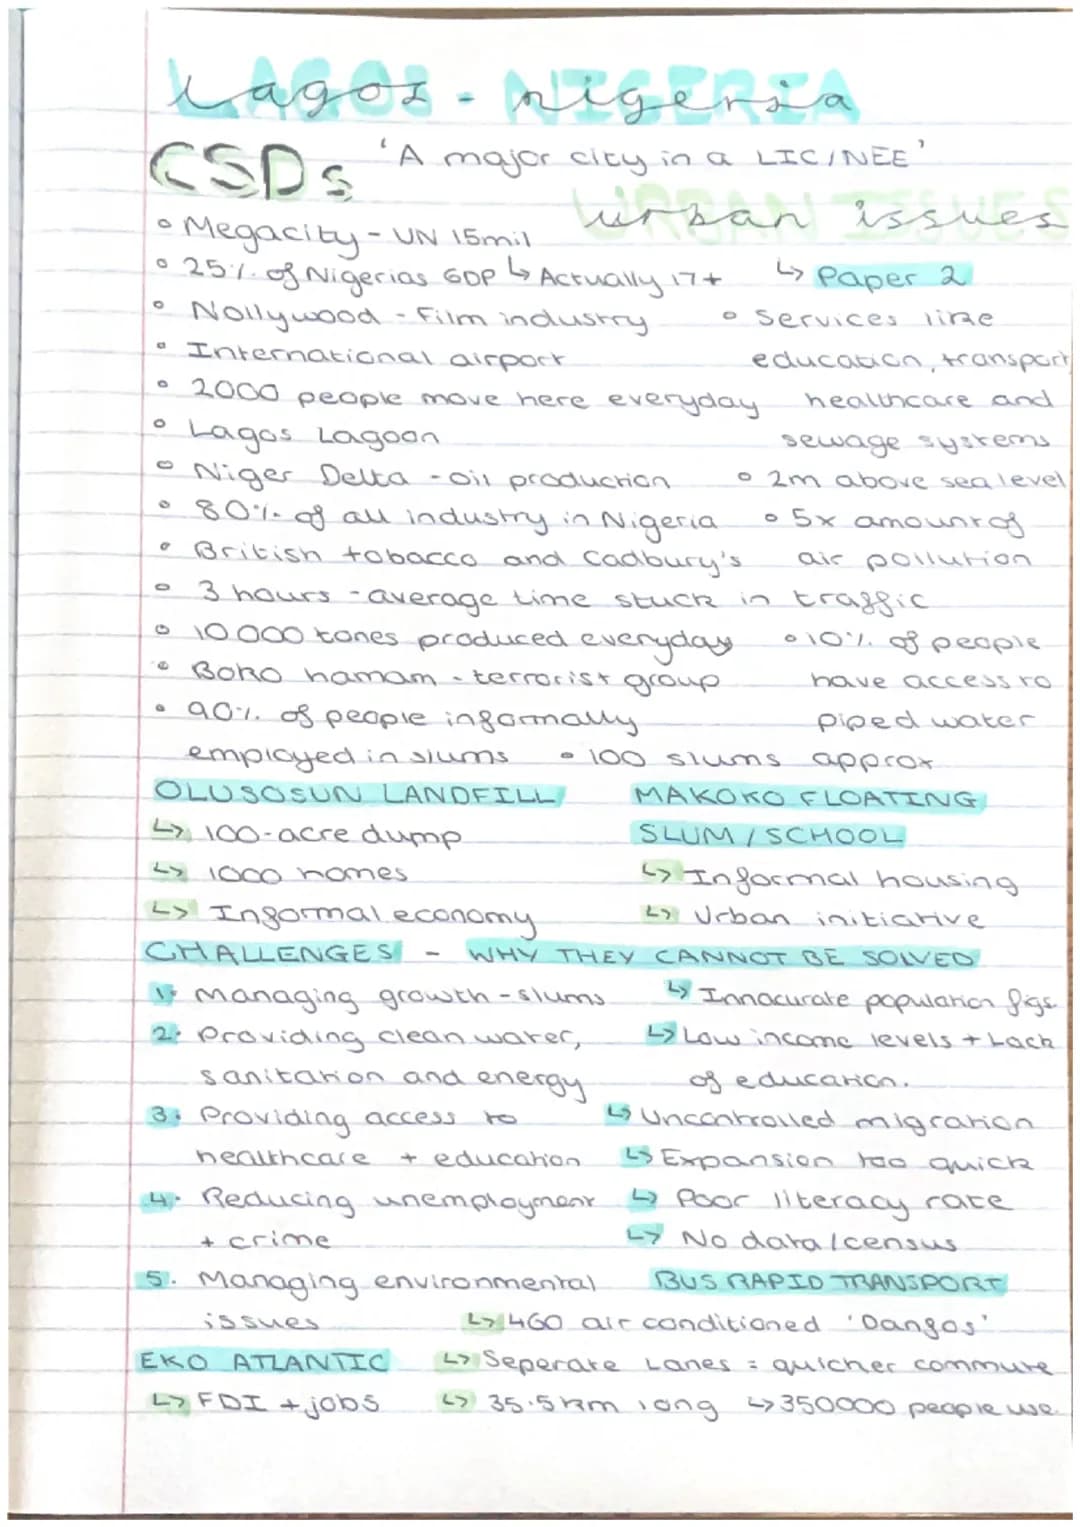 Lagos - nigeria
LAGOS - NIGERIA
CSDs 'A major city in a LIC/NEE'
urban issues
URBAN ISSUES
• Megacity - UN 15mil
↳ Actually 17+
↳ Paper 2
• 25% of Nigerias GDP
• Nollywood - Film industry
• International airport
• 2000 people move here everyday
• Lagos Lagoon
• Niger Delta - oil production
• 80% of all industry in Nigeria
• British tobacco and Cadbury's
• 3 hours - average time stuck in traffic
• 10 000 tones produced everyday
• Boko hamam - terrorist group
• 90% of people informally
employed in slums
• Services like
education, transport
healthcare and
sewage systems
• 2m above sea level
• 5x amount of
air pollution
• 10% of people
have access to
piped water
• 100 slums approx
OLUSOSUN LANDFILL
↳ 100-acre dump
↳ 1000 homes
↳ Informal economy
MAKOKO FLOATING
SLUM / SCHOOL
↳ Informal housing
↳ Urban initiative
CHALLENGES - WHY THEY CANNOT BE SOLVED
1. Managing growth - slums
2. Providing clean water,
sanitation and energy
3. Providing access to
healthcare + education
4. Reducing unemployment
+ crime
5. Managing environmental
issues
↳ Innacurate population figs
↳ Low income levels + Lack
of education.
↳ Uncontrolled migration
↳ Expansion too quick
↳ Poor literacy rate
↳ No data/census
BUS RAPID TRANSPORT
↳ 460 air conditioned 'Danfos'
↳ Seperate Lanes = quicher commute
↳ 35.5km long ↳ 350000 people use
EKO ATLANTIC
↳ FDI + jobs